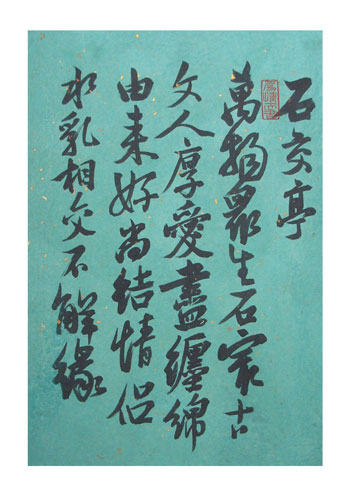 石交亭
萬物眾生石最古
文人厚愛盡纏綿
由来好尚結情侶
水乳相交不解緣